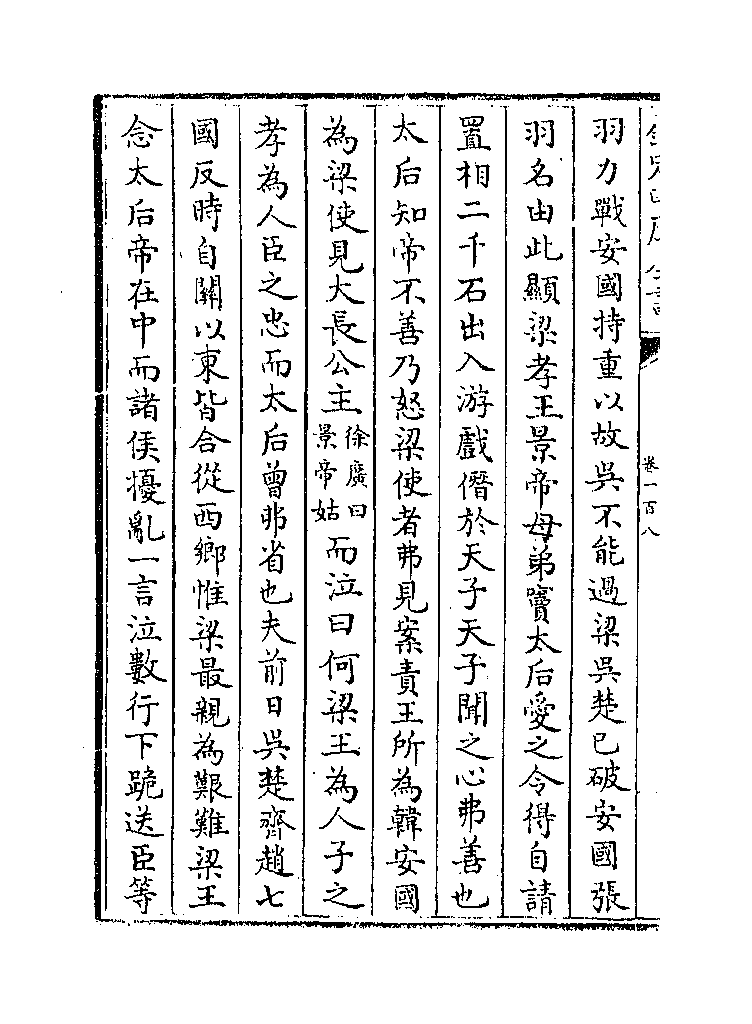 卷一百八
羽力戰安國持重以故吳不能過梁吳楚已破安國張
羽名由此顯梁孝王景帝母弟竇太后愛之令得自請
置相二千石出入游戲僭於天子天子聞之心弗善也
太后知帝不善乃怒梁使者弗見案責王所為韓安國
為梁使見大長公主徐廣曰景帝姑而泣曰何梁王為人子之
孝為人臣之忠而太后曾弗省也夫前日吳楚齊趙七
國反時自關以東皆合從西鄉惟梁最親為艱難梁王
念太后帝在中而諸侯擾亂一言泣數行下跪送臣等